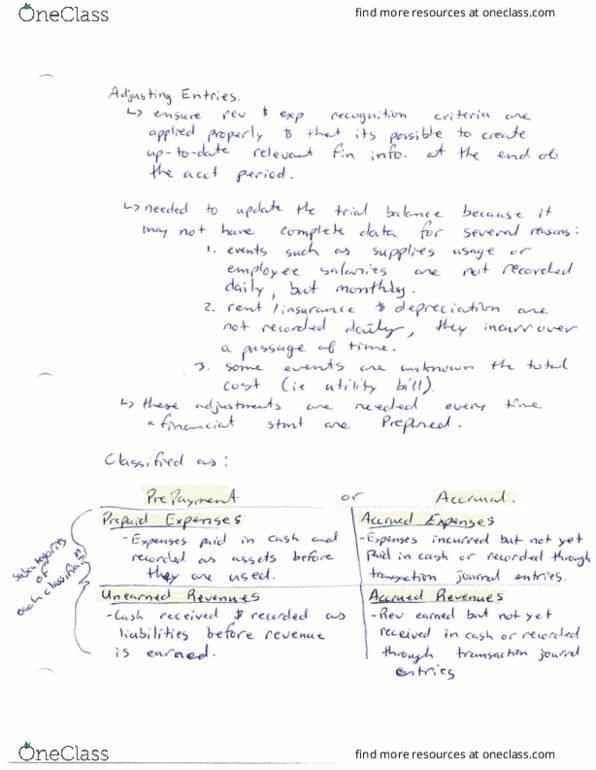 OneClass
find more resources at oneclass.com
Adjusting Entries.
↳ ensure rev & exp recognition criteria are
applied properly & that its possible to create
up-to-date relevant fin info. at the end of
the acct period.
↳ needed to update the trial balance because it
may not have complete data for several reasons:
1. events such as supplies usage or
employee salaries are not recorded
daily, but monthly.
2. rent / insurance & depreciation are
not recorded daily, they incurr over
a passage of time.
3. some events are unknown the total
cost (ie utility bill).
↳ these adjustments are needed every time
a financial stmt are Prepared.
Classified as:
PrePayment or Accrual.
subcategories
of
each classific
Prepaid Expenses
- Expenses paid in cash and
recorded as assets before
they are used.
Accrued Expenses
- Expenses incurred but not yet
Paid in cash or recorded through
transaction journal entries.
Unearned Revenues
- Cash received & recorded as
liabilities before revenue
is earned.
Accrued Revenues
- Rev earned but not yet
received in cash or recorded
through transaction journal
entries
OneClass
find more resources at oneclass.com